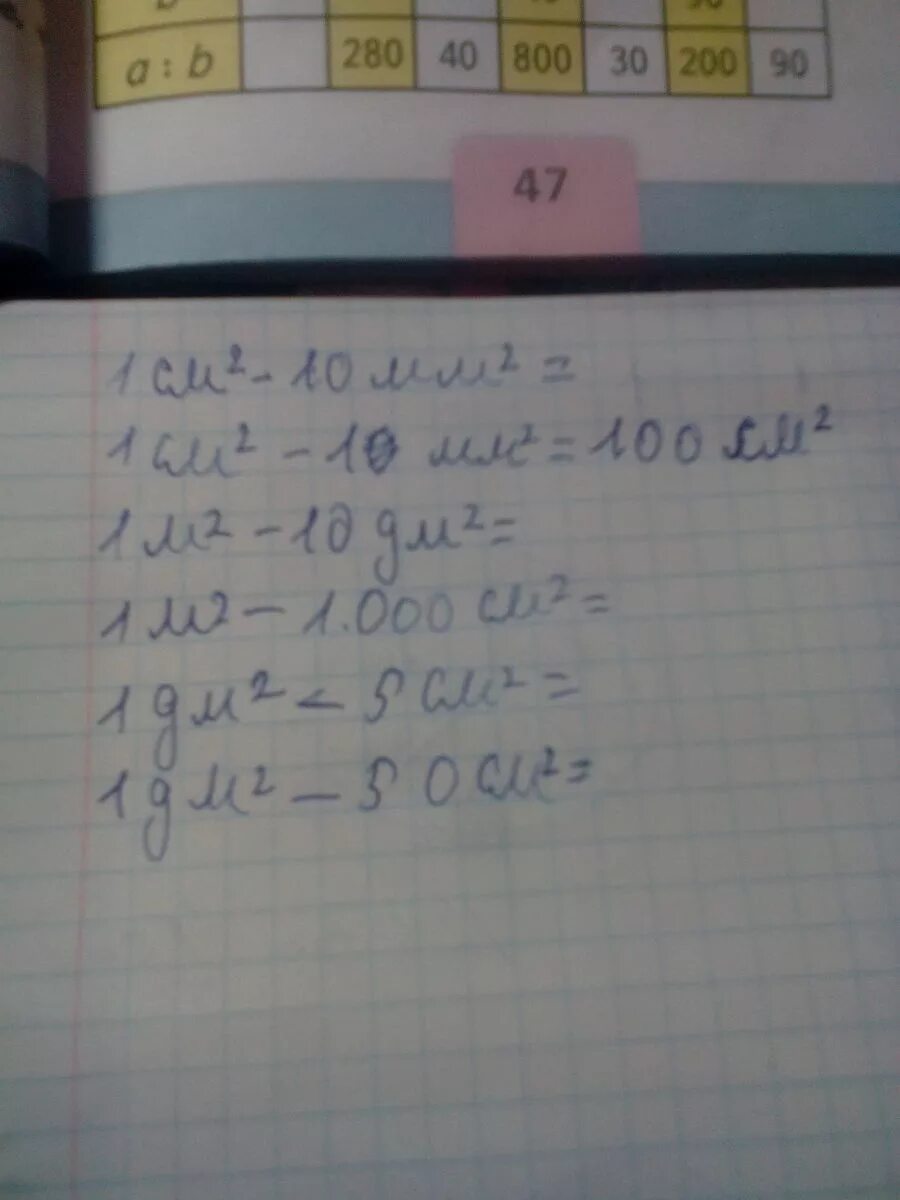 a : b 280 40 800 30 200 90
47
1 см² - 10 мм² =
1 см² - 10 мм² = 100 см²
1 м² - 10 дм² =
1 м² - 1.000 см² =
1 дм² - 5 см² =
1 дм² - 50 см² =